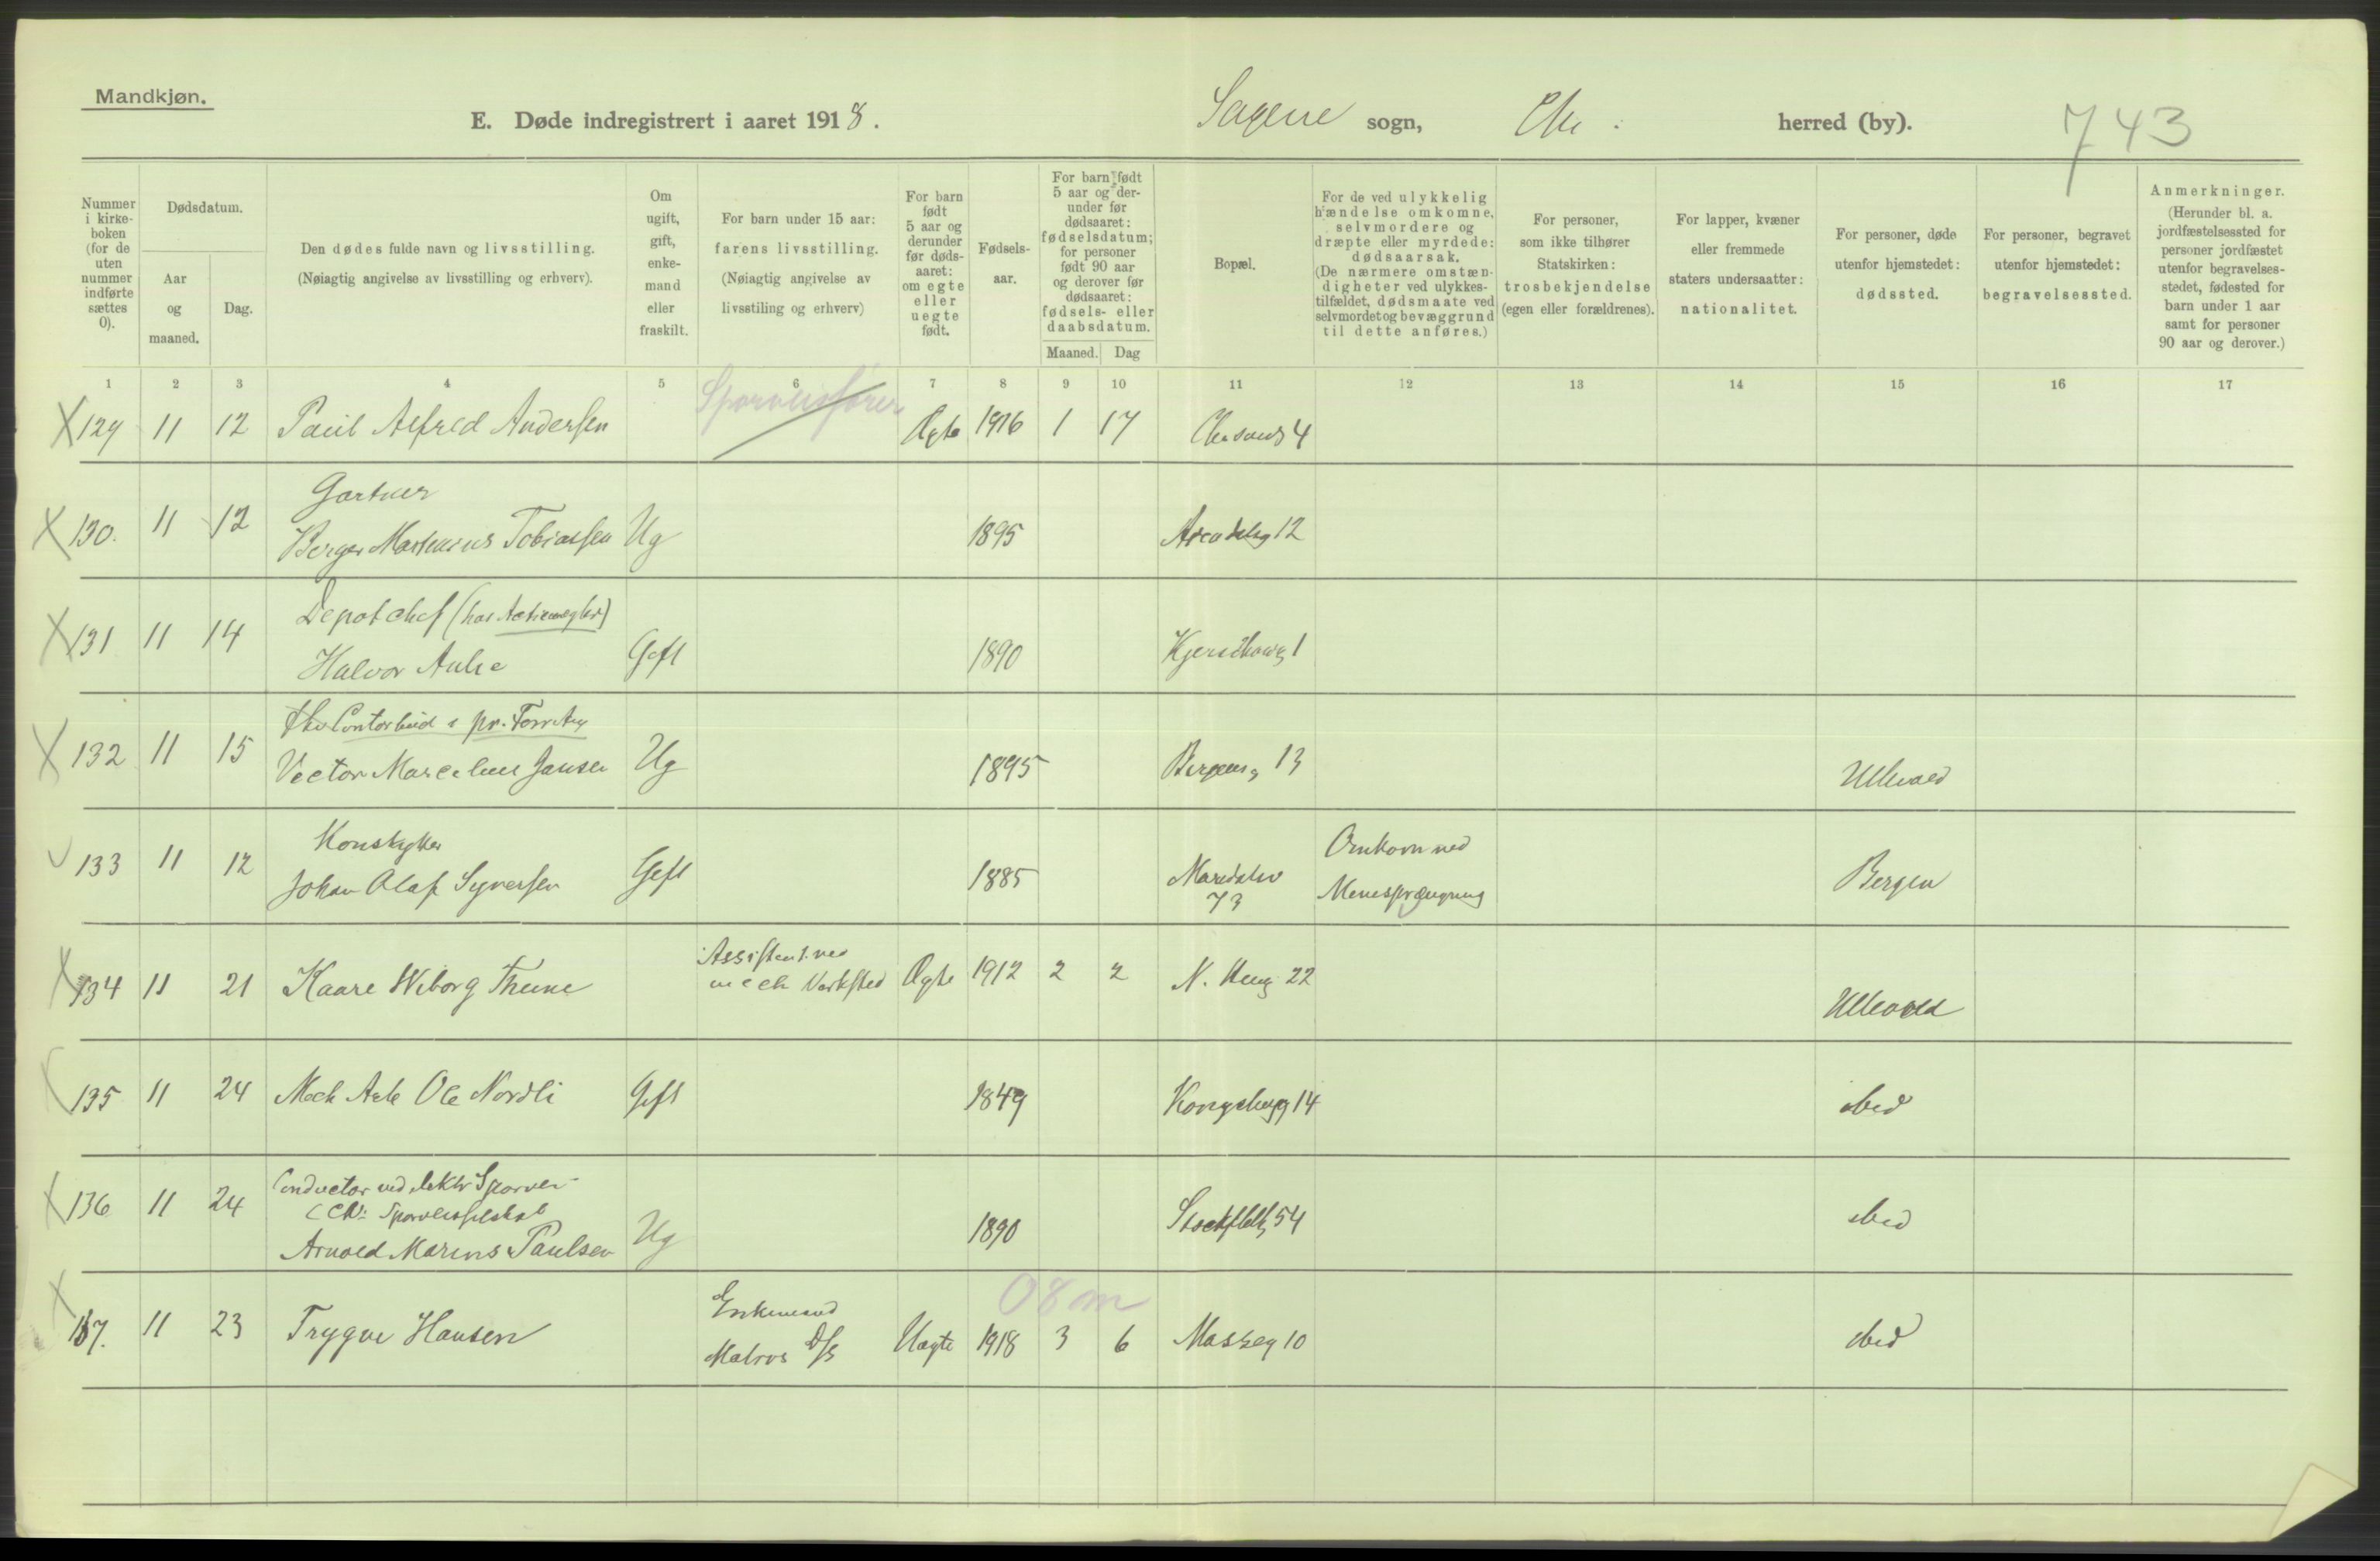 Mandkjøn.
E. Døde indregistrert i aaret 1918. Sagene sogn, Chr. herred (by). 743
Nummer i kirke-boken (for de uten nummer indførte sættes 0).
Dødsdatum.
Aar og maaned.
Dag.
Den dødes fulde navn og livsstilling.
(Nøiagtig angivelse av livsstilling og erhverv).
Om ugift, gift, enke-mand eller fraskilt.
For barn under 15 aar: farens livsstilling.
(Nøiagtig angivelse av livsstiling og erhverv)
For barn født 5 aar og derunder før døds-aaret: om egte eller uegte født.
Fødsels-aar.
For barn født 5 aar og der-under før dødsaaret: fødselsdatum; for personer født 90 aar og derover før dødsaaret: fødsels- eller daabsdatum.
Maaned. Dag
Bopæl.
For de ved ulykkelig hændelse omkomne, selvmordere og dræpte eller myrdede: dødsaarsak.
(De nærmere omstæn-digheter ved ulykkes-tilfældet, dødsmaate ved selvmordet og bevæggrund til dette anføres.)
For personer, som ikke tilhører Statskirken: trosbekjendelse (egen eller forældrenes).
For lapper, kvæner eller fremmede staters undersaatter: nationalitet.
For personer, døde utenfor hjemstedet: dødssted.
For personer, begravet utenfor hjemstedet: begravelsessted.
Anmerkninger.
(Herunder bl. a. jordfæstelsessted for personer jordfæstet utenfor begravelses-stedet, fødested for barn under 1 aar samt for personer 90 aar og derover.)
1 2 3 4 5 6 7 8 9 10 11 12 13 14 15 16 17
X 129 11 12 Paul Alfred Andersen Sporveisfører Ægte 1916 1 17 4
Gartner
X 130. 11 12 Berger Martinius Tobiassen Ug 1895 Arendalsg 12
Depotchef
X 131 11 14 Halvor Aulie Gift 1890 Kjerschowsg 1
Contorbud
X 132 11 15 Victor Marcelius Jansen Ug 1895 Bergensg 13 Ullevaal
133 11 12 Johan Olaf Syversen Gift 1885 Maridalsv 73 Omkom ved Minesprængning Bergen
X 134 11 21 Kaare Wiborg Thune Assistent ved mech Verksted Ægte 1912 2 2 22 Ullevaal
X 135 11 24 Mech Arb Ole Nordli Gift 1849 Kongsbergg 14 ibid
Conductor ved elektr Sporvei
(Chr: Sporveisselskab
X 136 11 24 Arnold Marius Paulsen Ug 1890 Stockflethg 54 ibid
Enkemand 08m
X 137. 11 23 Trygve Hansen Matros D/S Uægte 1918 3 6 Mosseg 10 ibid